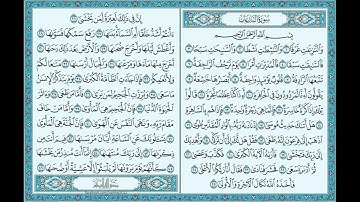 سُورَةُ النَّازِعَاتِ
بِسْمِ اللَّهِ الرَّحْمَٰنِ الرَّحِيمِ
وَالنَّازِعَاتِ غَرْقًا وَالنَّاشِطَاتِ نَشْطًا وَالسَّابِحَاتِ سَبْحًا
فَالسَّابِقَاتِ سَبْقًا فَالْمُدَبِّرَاتِ أَمْرًا يَوْمَ تَرْجُفُ الرَّاجِفَةُ
تَتْبَعُهَا الرَّادِفَةُ قُلُوبٌ يَوْمَئِذٍ وَاجِفَةٌ أَبْصَارُهَا خَاشِعَةٌ
يَقُولُونَ أَءِنَّا لَمَرْدُودُونَ فِي الْحَافِرَةِ أَءِذَا كُنَّا عِظَامًا نَّخِرَةً
قَالُوا تِلْكَ إِذًا كَرَّةٌ خَاسِرَةٌ فَإِنَّمَا هِيَ زَجْرَةٌ وَاحِدَةٌ فَإِذَا هُم بِالسَّاهِرَةِ
هَلْ أَتَاكَ حَدِيثُ مُوسَىٰ إِذْ نَادَاهُ رَبُّهُ بِالْوَادِ الْمُقَدَّسِ طُوًى
اذْهَبْ إِلَىٰ فِرْعَوْنَ إِنَّهُ طَغَىٰ فَقُلْ هَل لَّكَ إِلَىٰ أَن تَزَكَّىٰ وَأَهْدِيَكَ
إِلَىٰ رَبِّكَ فَتَخْشَىٰ فَأَرَاهُ الْآيَةَ الْكُبْرَىٰ فَكَذَّبَ وَعَصَىٰ
ثُمَّ أَدْبَرَ يَسْعَىٰ فَحَشَرَ فَنَادَىٰ فَقَالَ أَنَا رَبُّكُمُ الْأَعْلَىٰ
فَأَخَذَهُ اللَّهُ نَكَالَ الْآخِرَةِ وَالْأُولَىٰ
إِنَّ فِي ذَٰلِكَ لَعِبْرَةً لِّمَن يَخْشَىٰ
ءَأَنتُمْ أَشَدُّ خَلْقًا أَمِ السَّمَاءُ بَنَاهَا رَفَعَ سَمْكَهَا فَسَوَّاهَا
وَأَغْطَشَ لَيْلَهَا وَأَخْرَجَ ضُحَاهَا وَالْأَرْضَ بَعْدَ ذَٰلِكَ دَحَاهَا
أَخْرَجَ مِنْهَا مَاءَهَا وَمَرْعَاهَا وَالْجِبَالَ أَرْسَاهَا مَتَاعًا لَّكُمْ
وَلِأَنْعَامِكُمْ فَإِذَا جَاءَتِ الطَّامَّةُ الْكُبْرَىٰ يَوْمَ يَتَذَكَّرُ الْإِنسَانُ
مَا سَعَىٰ وَبُرِّزَتِ الْجَحِيمُ لِمَن يَرَىٰ فَأَمَّا مَن طَغَىٰ وَآثَرَ
الْحَيَاةَ الدُّنْيَا فَإِنَّ الْجَحِيمَ هِيَ الْمَأْوَىٰ وَأَمَّا مَنْ خَافَ
مَقَامَ رَبِّهِ وَنَهَى النَّفْسَ عَنِ الْهَوَىٰ فَإِنَّ الْجَنَّةَ هِيَ الْمَأْوَىٰ
يَسْأَلُونَكَ عَنِ السَّاعَةِ أَيَّانَ مُرْسَاهَا فِيمَ أَنتَ مِن
ذِكْرَاهَا إِلَىٰ رَبِّكَ مُنتَهَاهَا إِنَّمَا أَنتَ مُنذِرُ مَن يَخْشَاهَا
كَأَنَّهُمْ يَوْمَ يَرَوْنَهَا لَمْ يَلْبَثُوا إِلَّا عَشِيَّةً أَوْ ضُحَاهَا